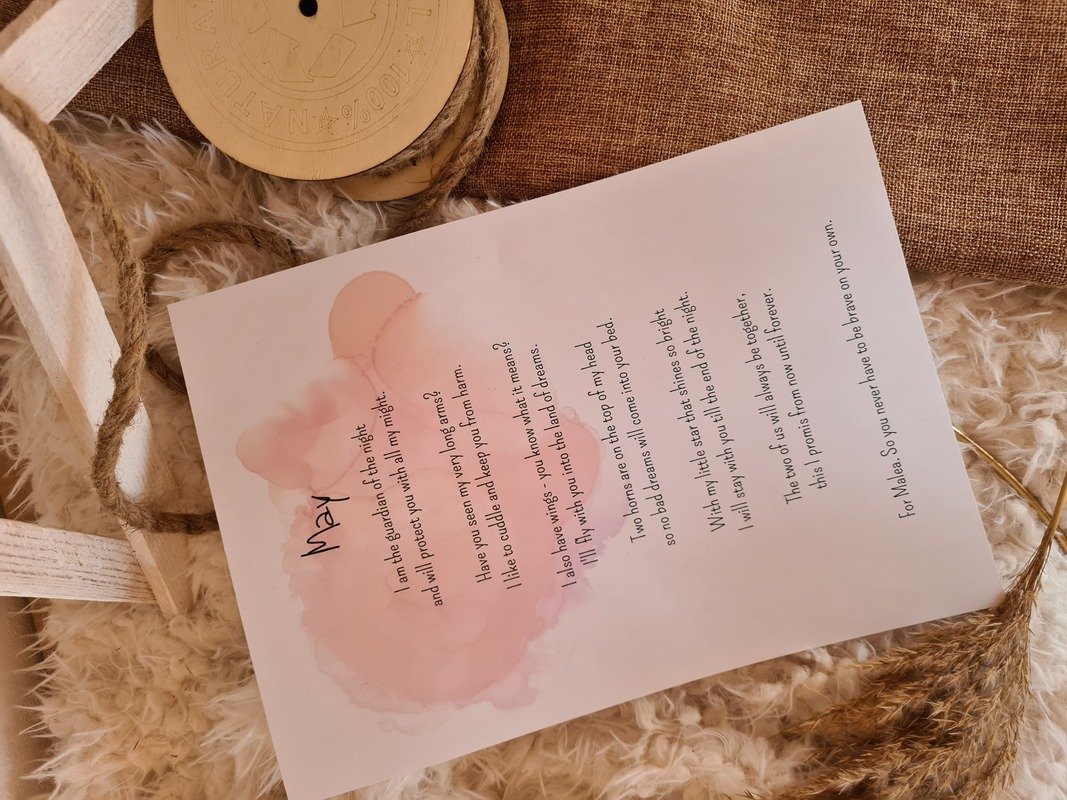 NATURAL ★ 100% ★ NATURAL
May
I am the guardian of the night
and will protect you with all my might.
Have you seen my very long arms?
I like to cuddle and keep you from harm.
I also have wings - you know what it means?
I'll fly with you into the land of dreams.
Two horns are on the top of my head
so no bad dreams will come into your bed.
With my little star that shines so bright
I will stay with you till the end of the night.
The two of us will always be together,
this I promis from now until forever.
For Malea. So you never have to be brave on your own.